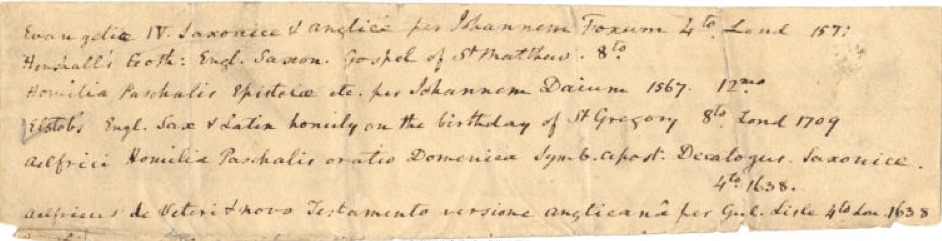 Evangelia IV. Saxonice & anglicè per Johannem Foxum 4to. Lond 157
Henshall's Goth: Engl. Saxon. Gospel of St Matthew. 8to.
Homilia Paschalis Epistolæ etc. per Johannem Daium 1567. 12mo
Elstob's Engl. Sax & Latin homily on the birthday of St Gregory 8to Lond 1709
Aelfrici Homilia Paschalis oratio Dominica Symb. apost. Decalogus. Saxonice.
4to. 1638.
Aelfricus de Veteri & novo Testamento versione anglicanâ per Gul. Lisle 4to Lon. 1638